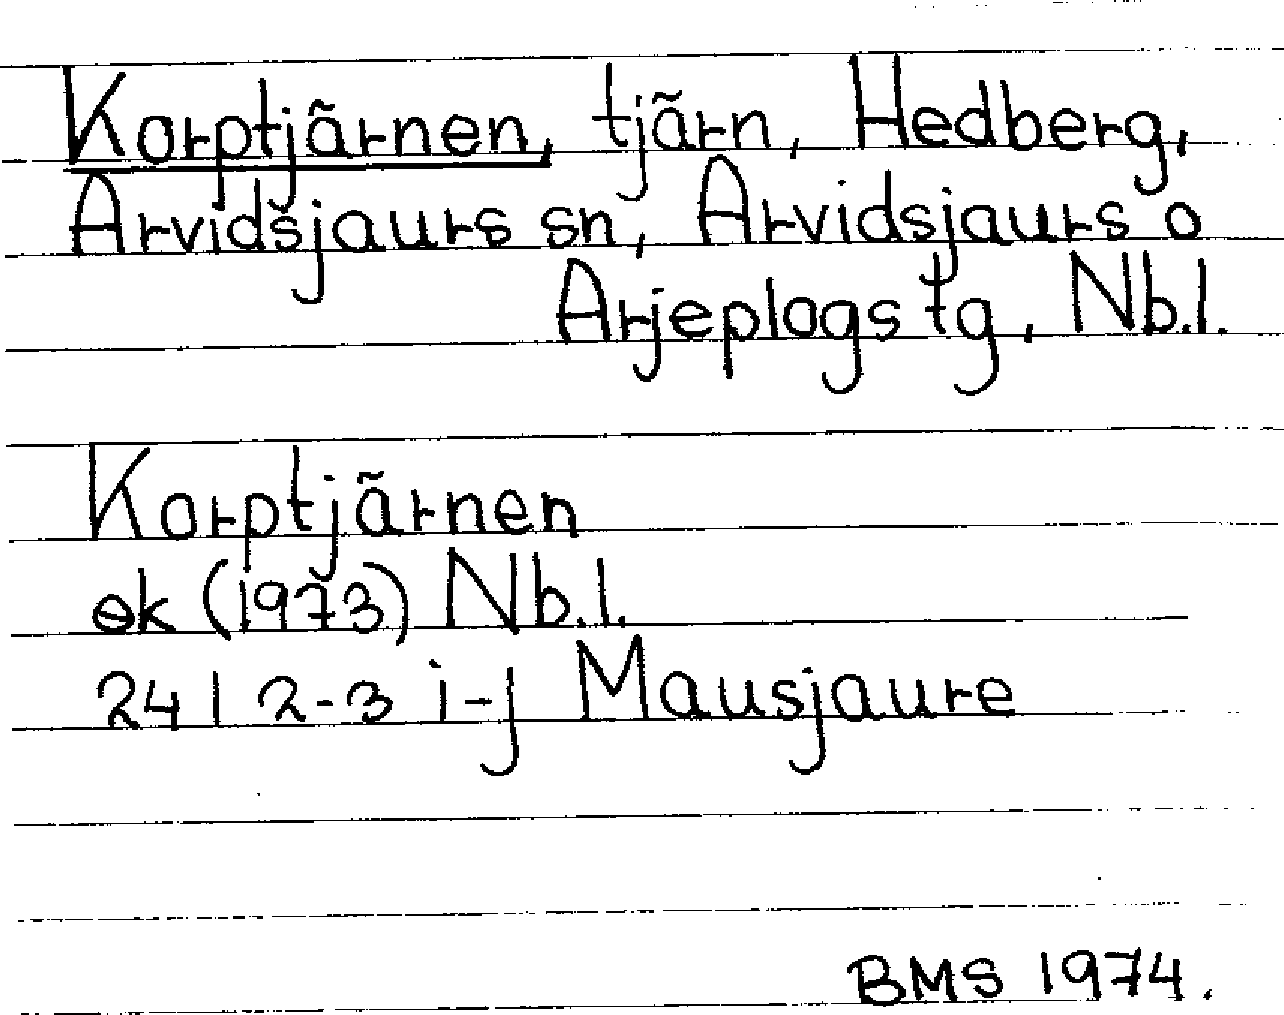 Korptjärnen, tjärn, Hedberg,
Arvidsjaurs sn, Arvidsjaurs o
Arjeplogs tg, Nb.l.
Korptjärnen
ek (1973) Nb.l.
24 I 2-3 i-j Mausjaure
BMS 1974.